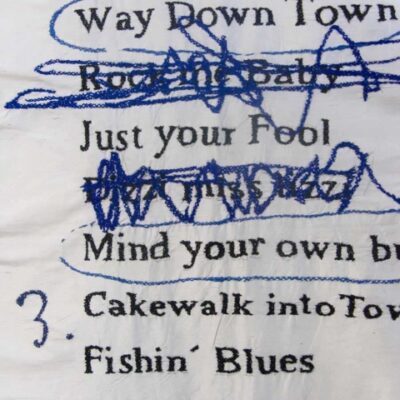 Way Down Town
Rock me Baby
Just your Fool
miss
Mind your own bu
3. Cakewalk into Tow
Fishin´ Blues